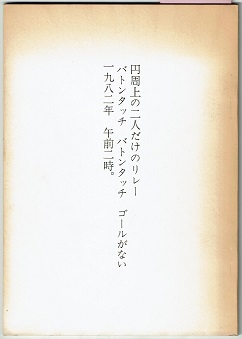 円周上の二人だけのリレー
バトンタッチ　バトンタッチ　ゴールがない
一九八二年　午前二時。